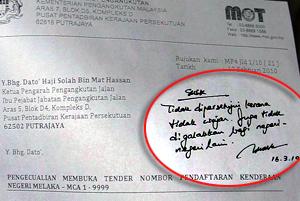 KEMENTERIAN PENGANGKUTAN MALAYSIA
ARAS 7, BLOK D5, KOMPLEKS D
PUSAT PENTADBIRAN KERAJAAN PERSEKUTUAN
62616 PUTRAJAYA
MOT
Rujukan kami : MP4
Tarikh
Februari 2010
Y.Bhg. Dato' Haji Solah Bin Mat Hassan
Ketua Pengarah Pengangkutan Jalan
Ibu Pejabat Jabatan Pengangkutan Jalan
Aras 5, No. 26, D4, Kompleks D.
Pusat Pentadbiran Kerajaan Persekutuan
62502 PUTRAJAYA
Tidak dipersetujui kerana
tidak
juga tidak
digalakkan bagi negeri-
negeri lain.
16.3.10
Y.Bhg. Dato',
PENGECUALIAN MEMBUKA TENDER NOMBOR PENDAFTARAN KENDERAAN
NEGERI MELAKA - MCA 1 - 9999